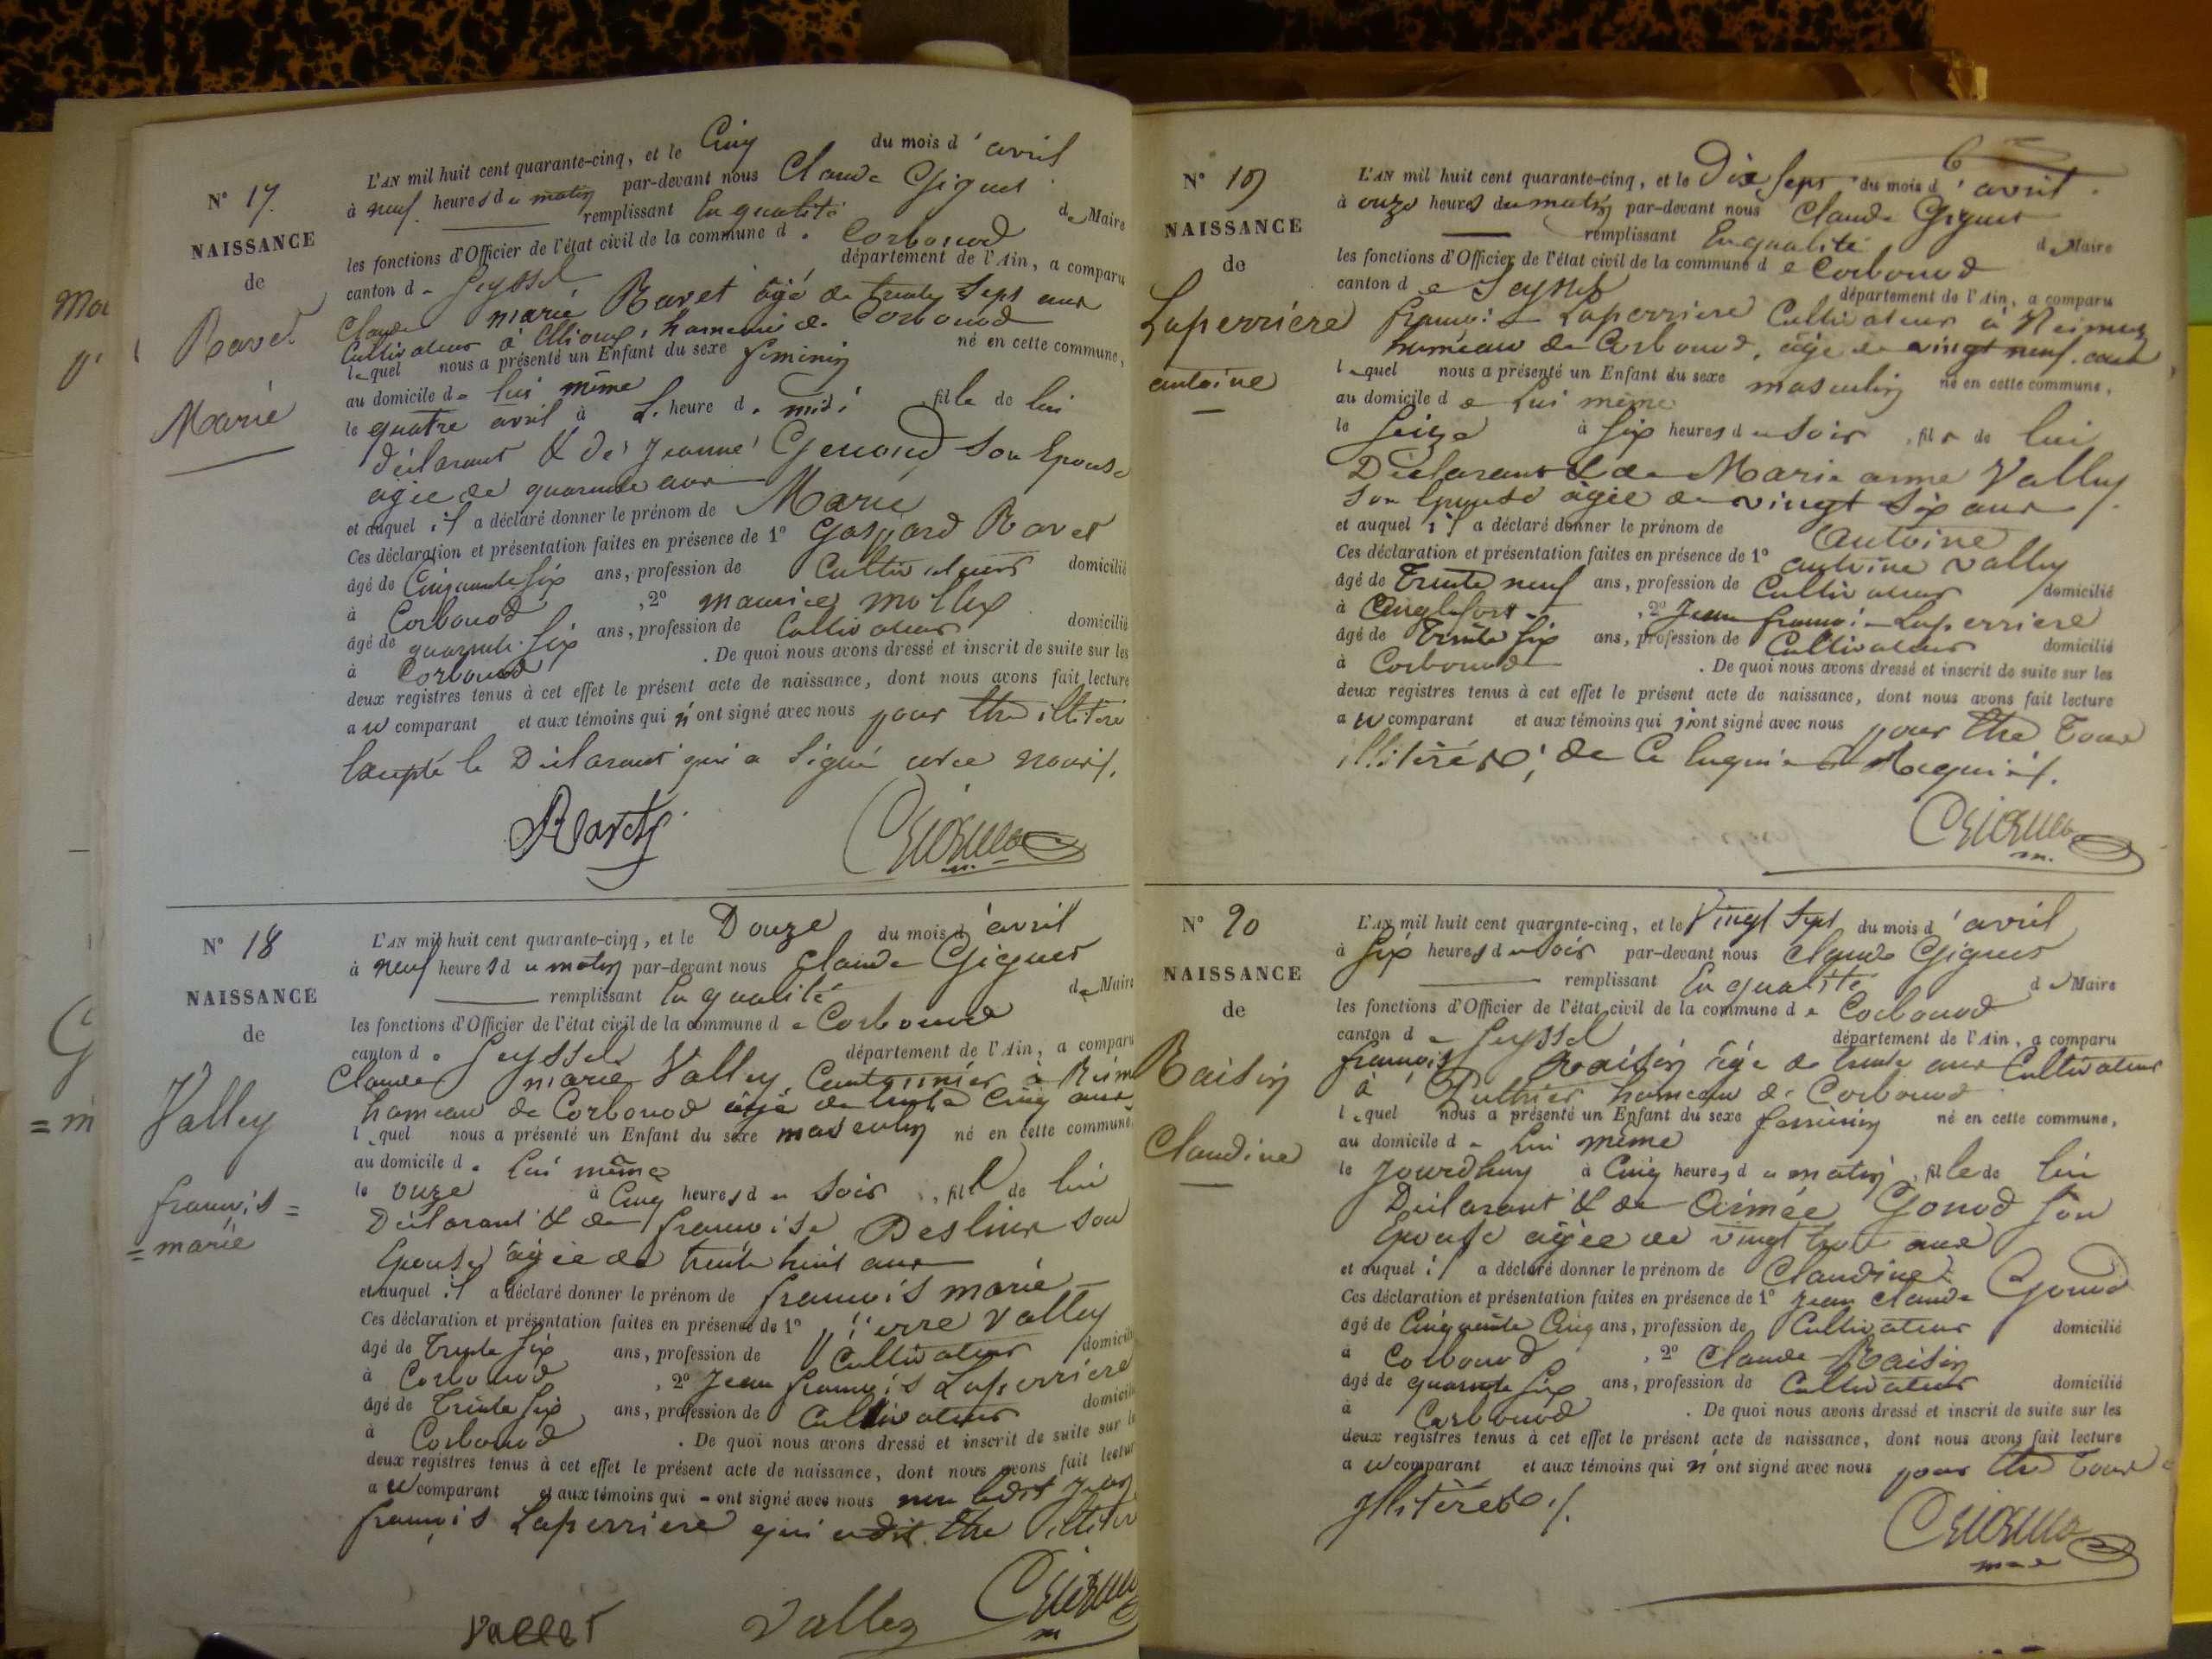 N° 17
NAISSANCE
de
Ravet
Marie
L'AN mil huit cent quarante-cinq, et le Cinq du mois d'avril
à neuf heures du matin par-devant nous Claude Giguet
remplissant En qualité de Maire
les fonctions d'Officier de l'état civil de la commune d. Corbonod
canton de Seyssel département de l'Ain, a comparu
Claude marie Ravet âgé de trente Sept ans
Cultivateur à hameau de Corbonod
lequel nous a présenté un Enfant du sexe feminin né en cette commune,
au domicile de lui même
le quatre avril à L. heure d. midi, fille de lui
déclarant & de Jeanne Genoud Son Epouse
agée de quarante ans
et auquel il a déclaré donner le prénom de Marie
Ces déclaration et présentation faites en présence de 1° Gaspard Ravet
âgé de Cinquante Six ans, profession de Cultivateur domicilié
à Corbonod, 2° maurice
âgé de quarante Six ans, profession de Cultivateur domicilié
à Corbonod. De quoi nous avons dressé et inscrit de suite sur les
deux registres tenus à cet effet le présent acte de naissance, dont nous avons fait lecture
au comparant et aux témoins qui n'ont signé avec nous pour Etre illitéré
Excepté le Déclarant qui a Signé avec nous
N° 18
NAISSANCE
de
Valley
françois =
= marie
L'AN mil huit cent quarante-cinq, et le Douze du mois d'avril
à neuf heures du matin par-devant nous Claude Giguet
remplissant En qualité de Maire
les fonctions d'Officier de l'état civil de la commune de Corbonod
canton de Seyssel département de l'Ain, a comparu
Claude marie Valley, Cantonnier à
hameau de Corbonod âgé de trente Cinq ans
lequel nous a présenté un Enfant du sexe masculin né en cette commune,
au domicile de lui même
le onze à Cinq heures du Soir, fils de lui
Déclarant & de françoise son
Epouse âgée de trente huit ans
et auquel il a déclaré donner le prénom de françois marie
Ces déclaration et présentation faites en présence de 1° pierre Valley
âgé de Trente Six ans, profession de Cultivateur domicilié
à Corbonod, 2° Jean françois Laperriere
âgé de Trente Six ans, profession de Cultivateur domicilié
à Corbonod. De quoi nous avons dressé et inscrit de suite sur les
deux registres tenus à cet effet le présent acte de naissance, dont nous avons fait lecture
au comparant et aux témoins qui - ont signé avec nous non ledit Jean
françois Laperriere qui a dit Etre illitéré
Valley
N° 19
NAISSANCE
de
Laperriére
antoine
6
L'AN mil huit cent quarante-cinq, et le Dix Sept du mois d'avril
à onze heures du matin par-devant nous Claude Giguet
remplissant En qualité de Maire
les fonctions d'Officier de l'état civil de la commune de Corbonod
canton de Seyssel département de l'Ain, a comparu
françois Laperriere Cultivateur à
hameau de Corbonod, âgé de vingt neuf ans
lequel nous a présenté un Enfant du sexe masculin né en cette commune,
au domicile de Lui même
le Seize à Six heures du Soir, fils de lui
Déclarant & de Marie anne Valley
Son Epouse âgée de vingt Six ans
et auquel il a déclaré donner le prénom de Antoine
Ces déclaration et présentation faites en présence de 1° antoine Valley
âgé de Trente neuf ans, profession de Cultivateur domicilié
à, 2° Jean françois Laperriere
âgé de Trente Six ans, profession de Cultivateur domicilié
à Corbonod. De quoi nous avons dressé et inscrit de suite sur les
deux registres tenus à cet effet le présent acte de naissance, dont nous avons fait lecture
au comparant et aux témoins qui n'ont signé avec nous pour Etre Tous
illitérés, de Ce Enquis et Requis
N° 20
NAISSANCE
de
Raisin
Claudine
L'AN mil huit cent quarante-cinq, et le Vingt Sept du mois d'avril
à Six heures du Soir par-devant nous Claude Giguet
remplissant En qualité de Maire
les fonctions d'Officier de l'état civil de la commune de Corbonod
canton de Seyssel département de l'Ain, a comparu
françois Raisin âgé de trente ans Cultivateur
à hameau de Corbonod
lequel nous a présenté un Enfant du sexe feminin né en cette commune,
au domicile de Lui même
le Jourdhuy à Cinq heures du matin, fille de lui
Déclarant & de Aimée Gonod Son
Epouse âgée de vingt trois ans
et auquel il a déclaré donner le prénom de Claudine
Ces déclaration et présentation faites en présence de 1° Jean Claude Gonod
âgé de Cinquante Cinq ans, profession de Cultivateur domicilié
à Corbonod, 2° Claude Raisin
âgé de quarante Six ans, profession de Cultivateur domicilié
à Corbonod. De quoi nous avons dressé et inscrit de suite sur les
deux registres tenus à cet effet le présent acte de naissance, dont nous avons fait lecture
au comparant et aux témoins qui n'ont signé avec nous pour Etre Tous
Illitérés